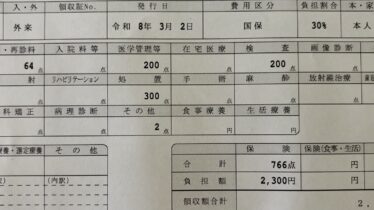 入・外 領収証No. 発行日 費用区分 負担割合 本・家
外来 令和 8年 3月 2日 国保 30% 本人
・再診料 入院料等 医学管理等 在宅医療 検査 画像診断
64点 点 200点 点 200点 点
射 リハビリテーション 処置 手術 麻酔 放射線治療
点 点 300点 点 点 点
科矯正 病理診断 その他 食事療養 生活療養
点 点 2点 円 円
療養・選定療養 その他 保険 保険(食事・生活)
(内訳) 合計 766点 円
負担額 2,300円 円
領収額合計 2,